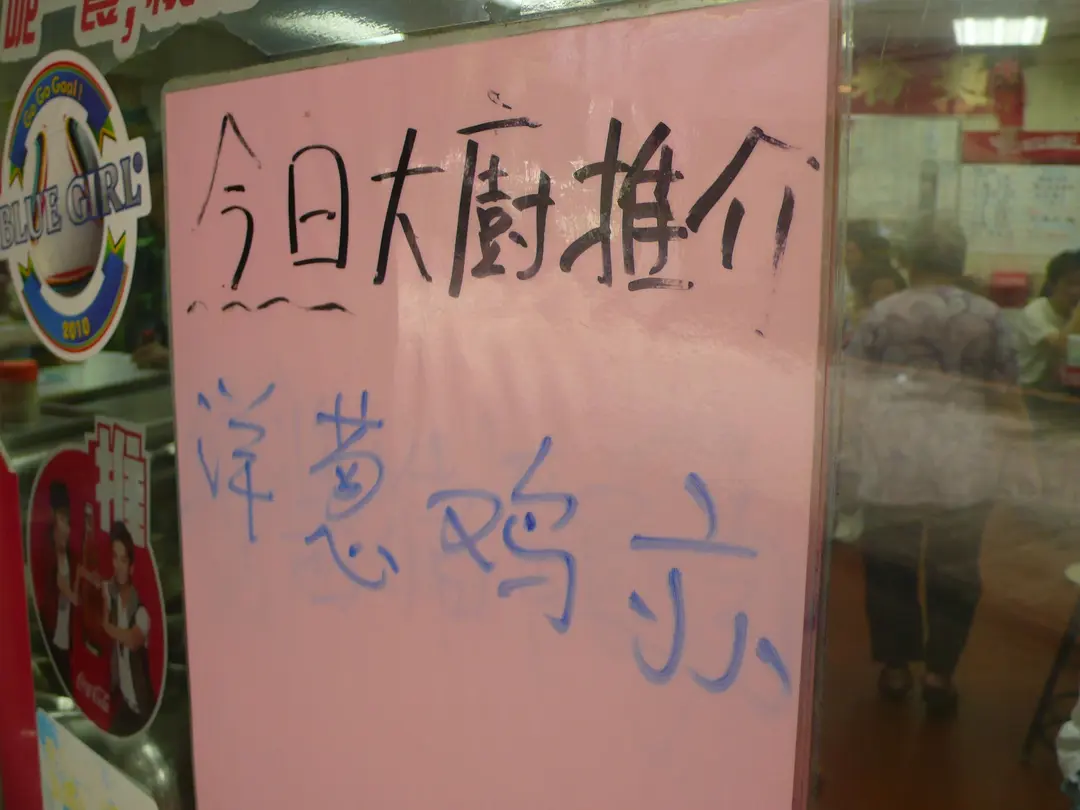 Go Go Goal!
BLUE GIRL
2010
今日大廚推介
洋葱鸡亦
推